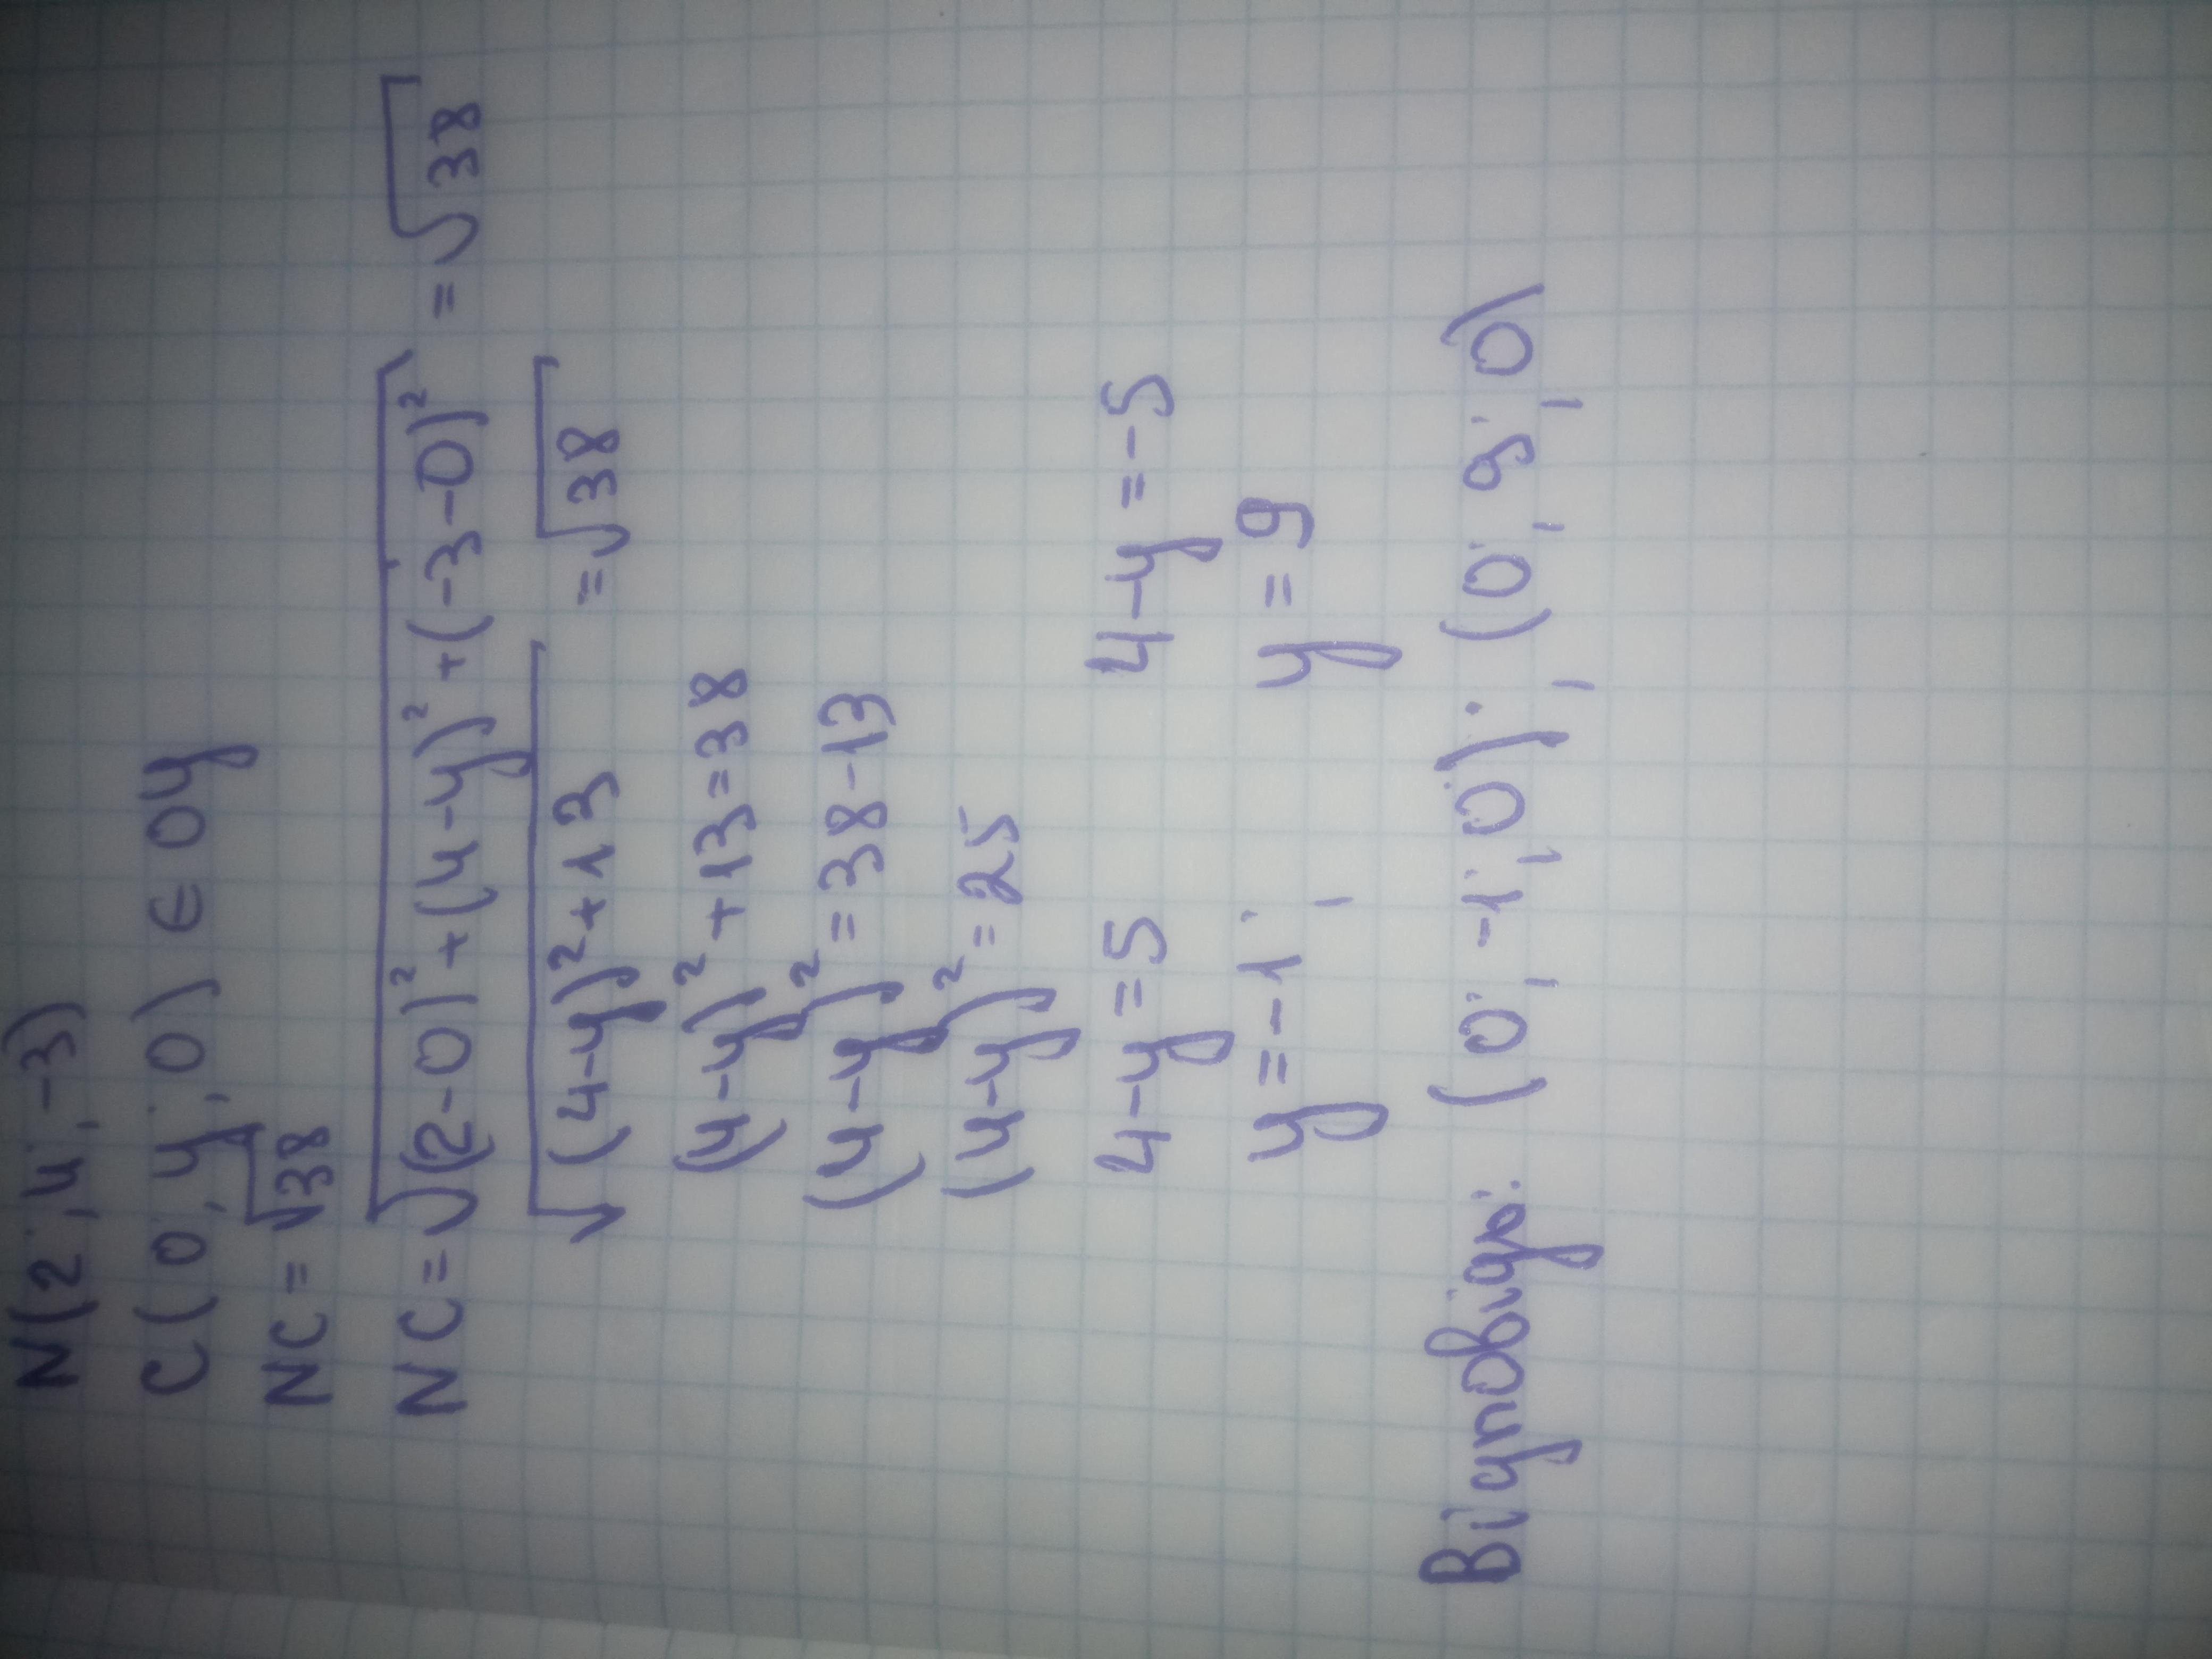 N(2; 4; -3)
C(0; y; 0) ∈ Oy
NC = √38
NC = √(2-0)² + (4-y)² + (-3-0)² = √38
√(4-y)² + 13 = √38
(4-y)² + 13 = 38
(4-y)² = 38 - 13
(4-y)² = 25
4-y = 5 4-y = -5
y = -1; y = 9
Відповідь: (0; -1; 0); (0; 9; 0)